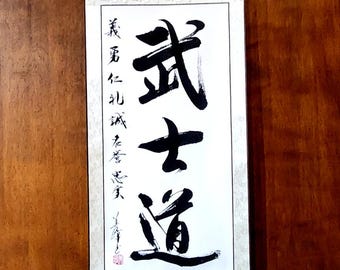 武士道
義勇仁礼誠名誉忠実